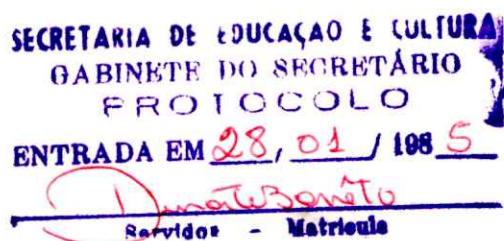 SECRETARIA DE EDUCAÇAO E CULTURA
GABINETE DO SECRETÁRIO
PROTOCOLO
ENTRADA EM 28, 01 / 1985
Servidor - Matricula